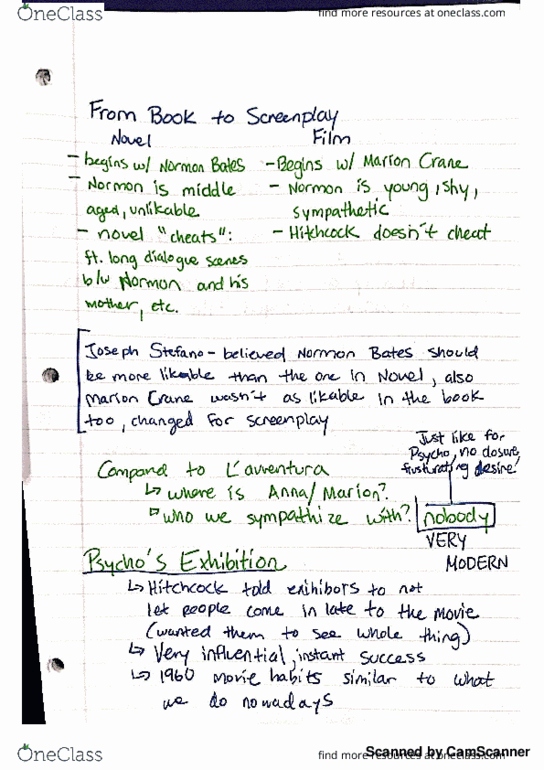 OneClass
find more resources at oneclass.com
From Book to Screenplay
Novel Film
- begins w/ Norman Bates - Begins w/ Marion Crane
- Norman is middle - Norman is young, shy,
aged, unlikable sympathetic
- novel "cheats": - Hitchcock doesn't cheat
ft. long dialogue scenes
b/w Norman and his
mother, etc.
Joseph Stefano - believed Norman Bates should
be more likable than the one in Novel, also
Marion Crane wasn't as likable in the book
too, changed for screenplay
Just like for
Psycho, no closure,
frusturating desire!
Compared to L'avventura
↳ where is Anna/Marion?
↳ who we sympathize with? nobody
VERY
MODERN
Psycho's Exhibition
↳ Hitchcock told exhibitors to not
let people come in late to the movie
(wanted them to see whole thing)
↳ Very influential, instant success
↳ 1960 movie habits similar to what
we do nowadays
OneClass
find more resources at oneclass.com
Scanned by CamScanner